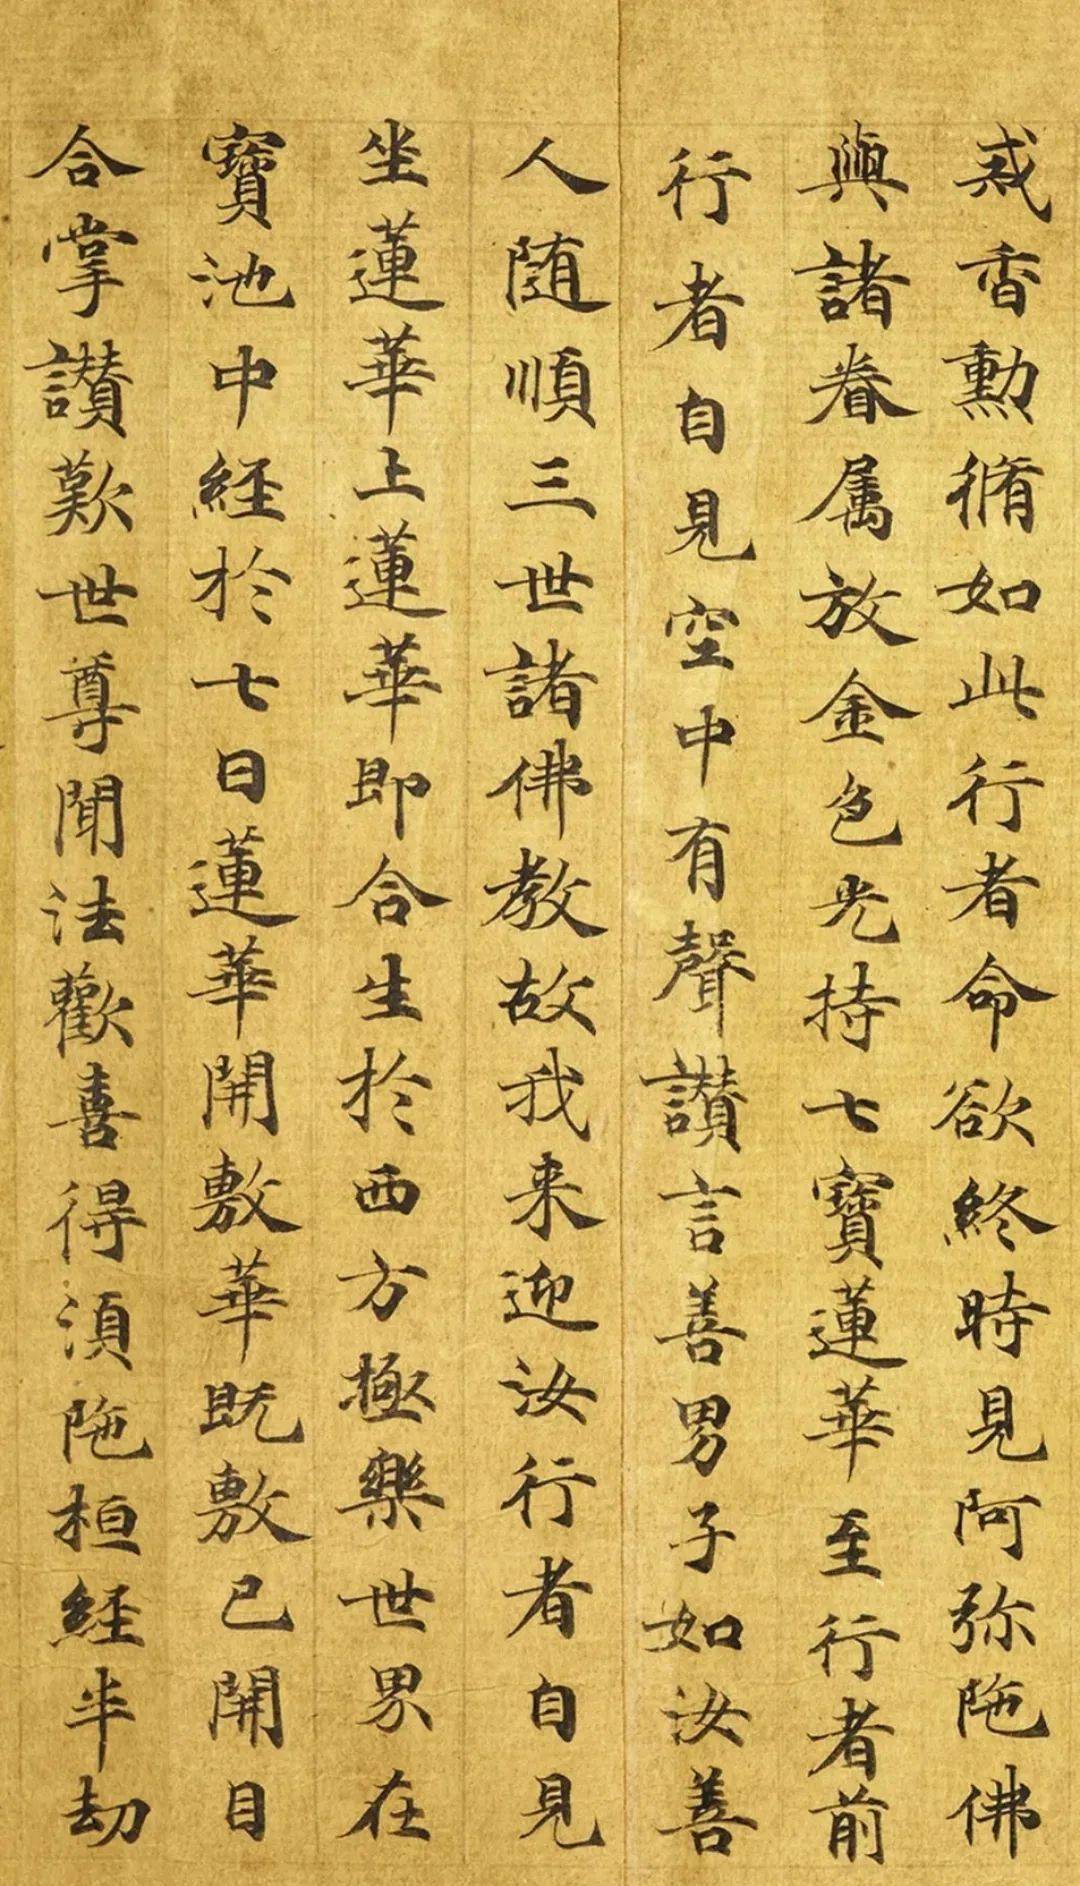 戒香勳脩如此行者命欲終時見阿弥陁佛
與諸眷属放金色光持七寶蓮華至行者前
行者自見空中有聲讃言善男子如汝善
人随順三世諸佛教故我来迎汝行者自見
坐蓮華上蓮華即合生於西方極樂世界在
寶池中経於七日蓮華開敷華既敷已開目
合掌讃歎世尊聞法歡喜得湏陁桓経半劫